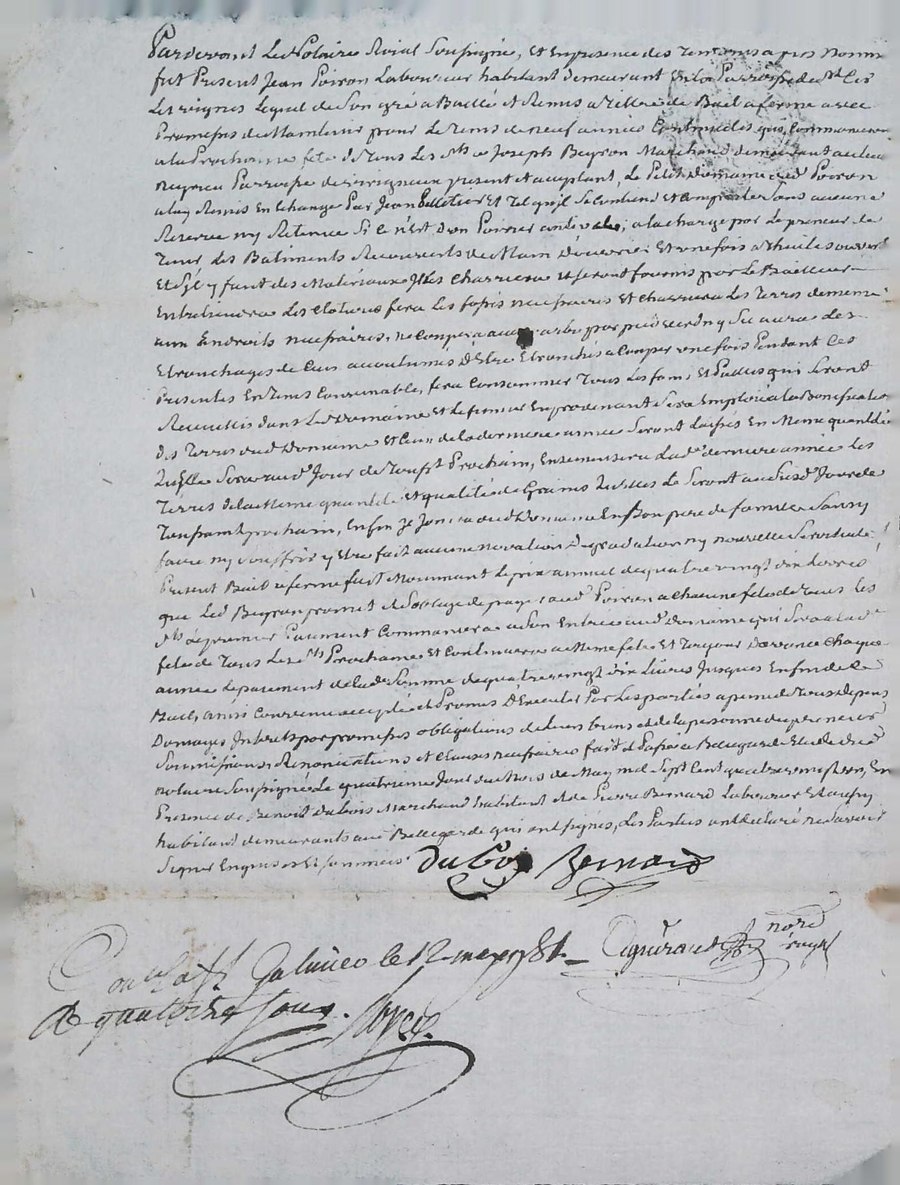 Pardevant Le Notaire Roial Soussigné, Et En presence des Temoins apres Nommés
fut Present Jean Poiron Laboureur habitant demeurant En la Parroisse de St
Lequel de Son gré a Baillé et Remis a Tiltre de Bail a ferme avec
Promesses de Maintenir pour Le tems de neuf années Continuelles qui Commenceront
a la Prochaine fete de Tous Les Sts a Joseph Beyron Marchand demeurant au lieu
Parroisse de present et acceptant, Le Petit Domaine dud Poiron
a luy Remis En Echange Par Jean Pelletier Et Tel qu'il Se Contient et Comporte Sans aucune
Reserve ny Retenue Si ce n'est d'un Poirier ; a la charge par Le preneur de
Tenir Les Batiments Recouverts de Main d'ouvrier Et une fois a Thuile
Et S'il y faut des Materiaux Il les Charriera et seront fournis par Le Bailleur
Entretiendra Les Clotures fera Les fossés necessaires Et Charriera Les Terres de meme
aux Endroits necessaires, ne Coupera aucun arbre par pied verd ny Sec aura Les
Etronchages de Ceux accoutumés D'Etre Etronchés a Couper une fois Pendant Ces
Presentes En Tems Convenable, fera Consommer Tous Les foins Et Pailles qui Seront
Recueillis dans Led Domaine Et Le fumier En provenant Sera Emploié a la Bonification
Des Terres dud Domaine Et Ceux de la derniere année Seront Laissés En Meme quantité
qu'Elle Sera aud Jour de Toussts Prochain, Ensemencera Lade derniere année Les
Terres de la Meme quantité et qualité de Grains qu'elles Le Seront au Susd Jour de
Toussaint prochain, Enfin Il Jouira dud Domaine En Bon pere de famille Sans y
faire ny Souffrir y Etre fait aucune novation Degradation ny nouvelle Servitude. Le
Present Bail a ferme fait Moiennant Le prix annuel de quatre vingt dix Livres
que Led Beyron promet et S'oblige de payer aud Poiron a chacune fete de Tous Les
Sts Le premier Paiement Commencera a Son Entrée aud Domaine qui Sera a lade
fete de Tous Les Sts Prochaine Et Continuera a Meme fete Et Toujour D'avance Chaque
année Le paiement de lade Somme de quatre vingt dix Livres Jusques En fin de
Bail, ainsi Convenu accepté et Promis D'Executer Par Les parties a peine de Tous Depens
Domages Interets par promesses obligations de Leurs biens et de la personne du preneur
Soumissions, Renonciations et Clauses necessaires fait et Passé a Bellegarde Etude dud
notaire Soussigné Le quatrieme Jour du Mois de May mil Sept Cent quatre vingt un, En
Presence de Benoit dubois Marchand habitant et de Pierre Bernard Laboureur Et aussy
habitant demeurants aud Bellegarde qui ont signés, Les Parties ont declaré ne Savoir
Signer Enquises Et Sommées
duboy Bernard
Controllé a St Galmier le 12 may 1781
R quatorze Sous.
nore royal